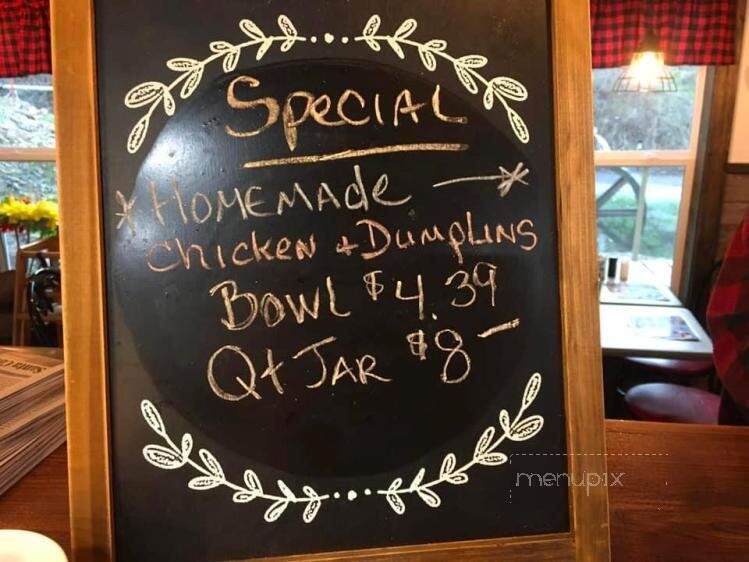 Special
* Homemade —*
Chicken + Dumplins
Bowl $4.39
Qt Jar $8 —
menupix